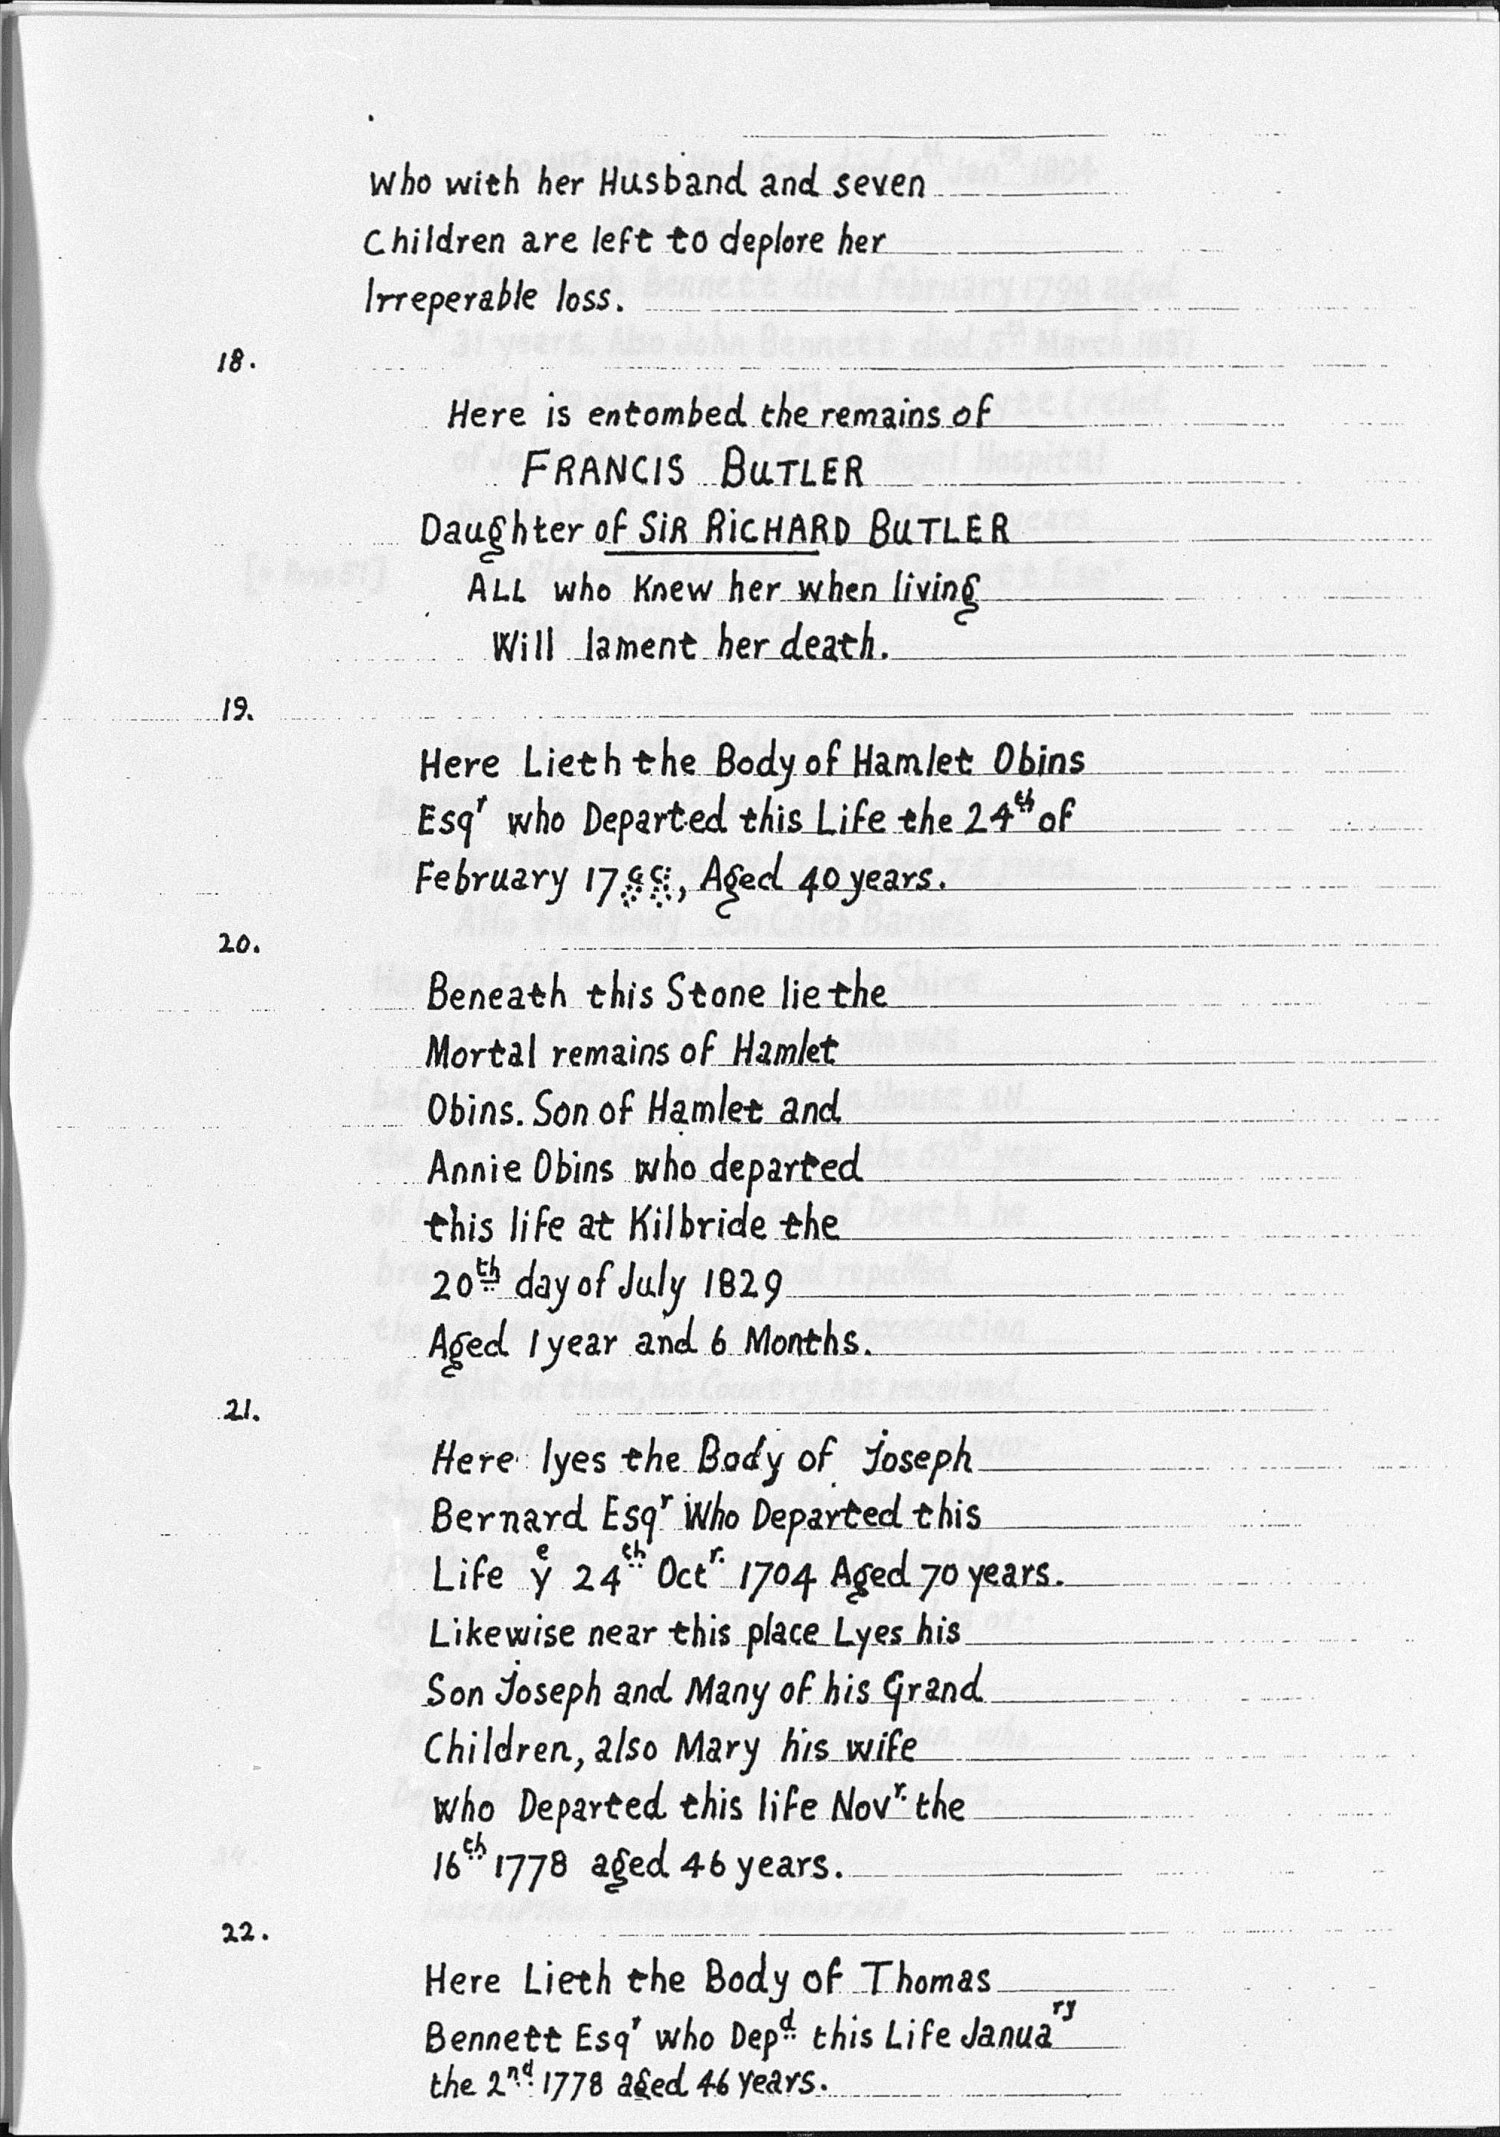 who with her Husband and seven
Children are left to deplore her
Irreperable loss.
18.
Here is entombed the remains of
FRANCIS BUTLER
Daughter of SIR RICHARD BUTLER
ALL who Knew her when living
Will lament her death.
19.
Here Lieth the Body of Hamlet Obins
Esqr who Departed this Life the 24th of
February 17, Aged 40 years.
20.
Beneath this Stone lie the
Mortal remains of Hamlet
Obins. Son of Hamlet and
Annie Obins who departed
this life at Kilbride the
20th day of July 1829
Aged 1 year and 6 Months.
21.
Here lyes the Body of Joseph
Bernard Esqr Who Departed this
Life ye 24th Octr. 1704 Aged 70 years.
Likewise near this place Lyes his
Son Joseph and Many of his Grand
Children, also Mary his wife
who Departed this life Novr. the
16th 1778 aged 46 years.
22.
Here Lieth the Body of Thomas
Bennett Esqr who Depd this Life January
the 2nd 1778 aged 46 years.